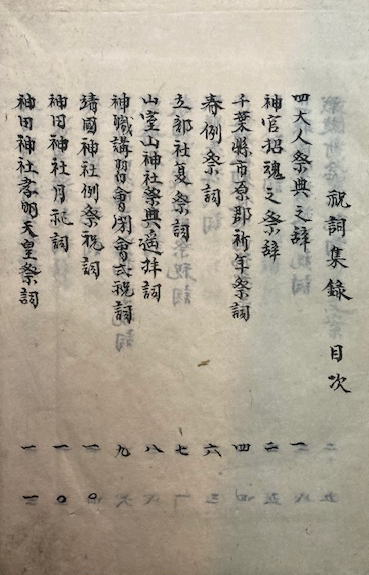 祝詞集錄 目次
四大人祭典之辞 一
神官招魂之祭辞 二
千葉縣市原郡祈年祭詞 四
春例祭詞 六
立郡社夏祭詞 七
山室山神社祭典遥拝詞 八
神職講習會閉會式祝詞 九
靖國神社例祭祝詞 一〇
神田神社月祀詞 一〇
神田神社孝明天皇祭詞 一一